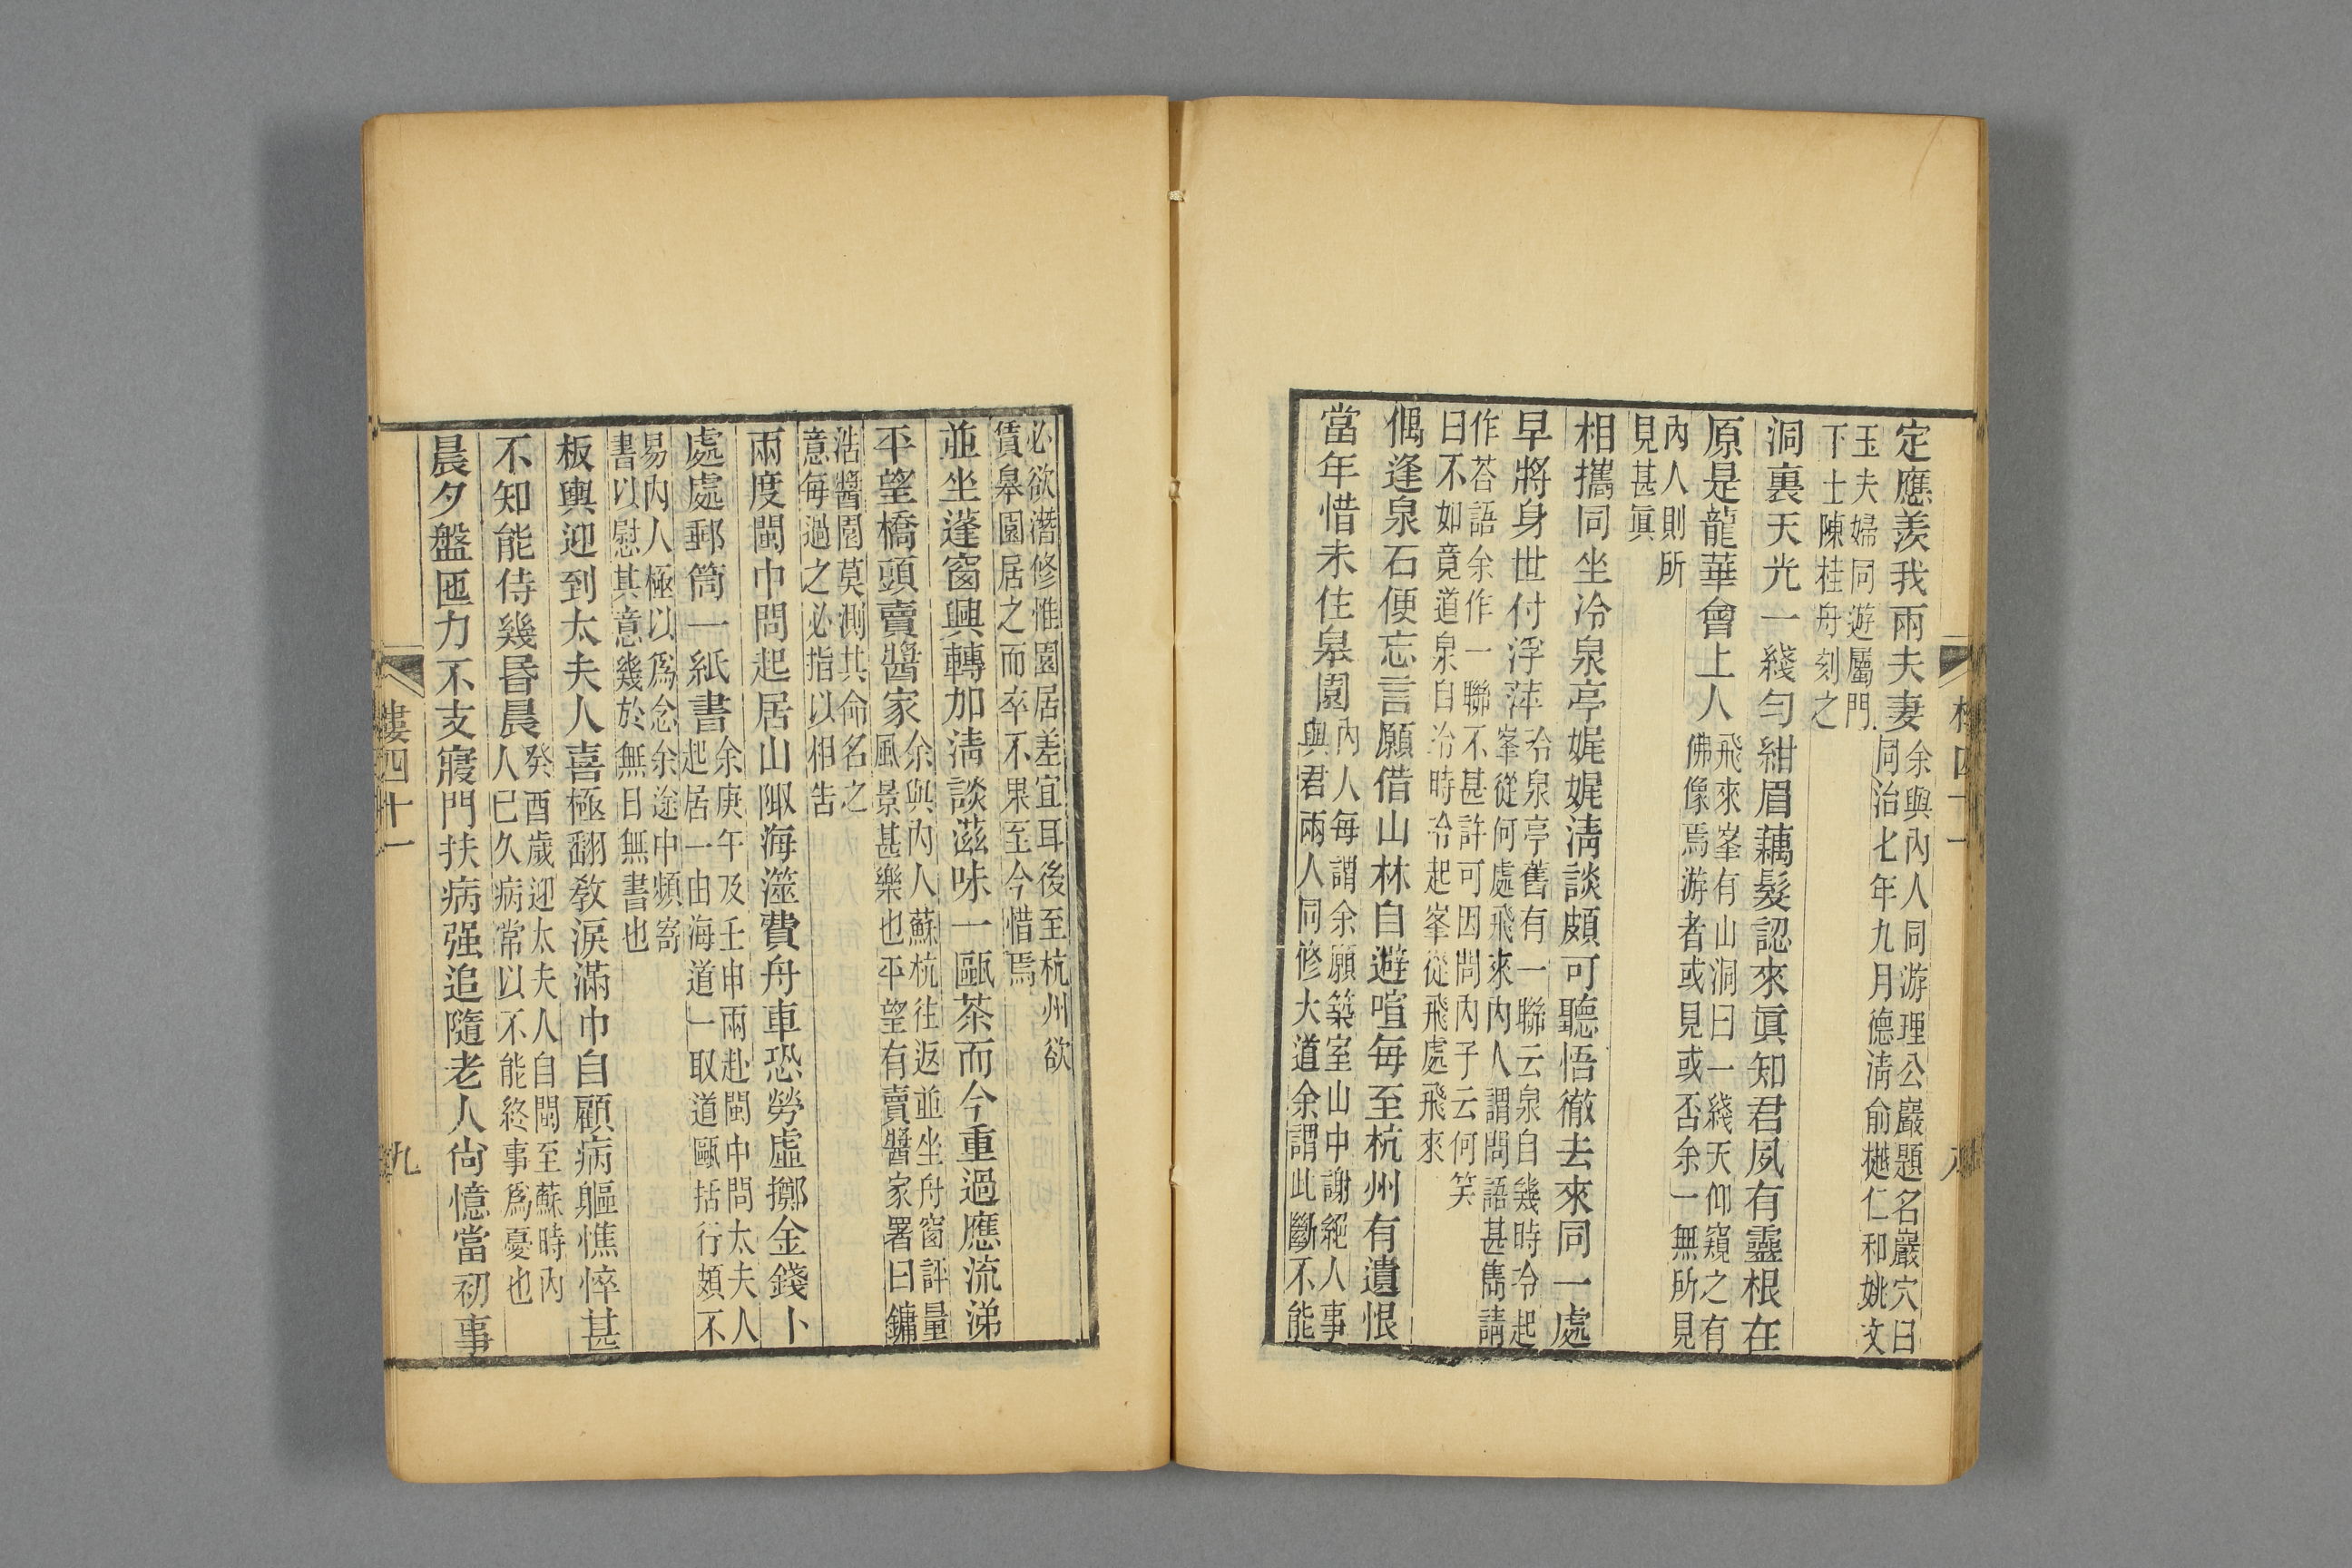 定應羨我兩夫妻
余與內人同游理公巖題名巖穴曰
同治七年九月德清俞樾仁和姚文
玉夫婦同遊屬門
下士陳桂舟刻之
洞裏天光一綫勻紺眉藕髮認來眞知君夙有靈根在
原是龍華會上人
飛來峯有山洞曰一綫天仰窺之有
佛像焉游者或見或否余一無所見
內人則所
見甚眞
相攜同坐冷泉亭娓娓清談頗可聽悟徹去來同一處
早將身世付浮萍
冷泉亭舊有一聯云泉自幾時冷起
峯從何處飛來內人謂問語甚雋請
作荅語余作一聯不甚許可因問內子云何笑
曰不如竟道泉自冷時冷起峯從飛處飛來
偶逢泉石便忘言願借山林自避喧每至杭州有遺恨
當年惜未住皋園
內人每謂余願築室山中謝絕人事
與君兩人同修大道余謂此斷不能
八
必欲潛修惟園居差宜耳後至杭州欲
賃皋園居之而卒不果至今惜焉
並坐蓬窗興轉加清談滋味一甌茶而今重過應流涕
平望橋頭賣醬家
余與內人蘇杭往返並坐舟窗評量
風景甚樂也平望有賣醬家署曰鏞
浩醬園莫測其命名之
意每過之必指以相告
兩度閩中問起居山陬海澨費舟車恐勞虛擲金錢卜
處處郵筒一紙書
余庚午及壬申兩赴閩中問太夫人
起居一由海道一取道甌括行頗不
易內人極以爲念余途中頻寄
書以慰其意幾於無日無書也
板輿迎到太夫人喜極翻教淚滿巾自顧病軀憔悴甚
不知能侍幾昏晨
癸酉歲迎太夫人自閩至蘇時內
人已久病常以不能終事爲憂也
晨夕盤匜力不支寢門扶病强追隨老人尙憶當初事
樓四十一
九